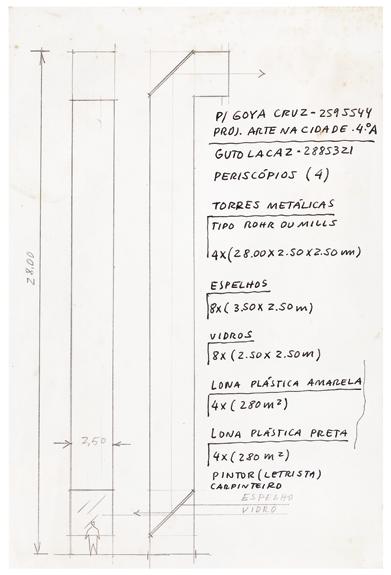 P/ GOYA CRUZ - 2595544
PROJ. ARTE NA CIDADE . 4.ºA
GUTO LACAZ - 2885321
PERISCÓPIOS (4)
TORRES METÁLICAS
TIPO ROHR OU MILLS
4X (28.00 X 2.50 X 2.50 m)
ESPELHOS
8X (3.50 X 2.50 m)
VIDROS
8X (2.50 X 2.50 m)
LONA PLÁSTICA AMARELA
4X (280 m²)
LONA PLÁSTICA PRETA
4X (280 m²)
PINTOR (LETRISTA)
CARPINTEIRO
ESPELHO
VIDRO
28.00
2,50